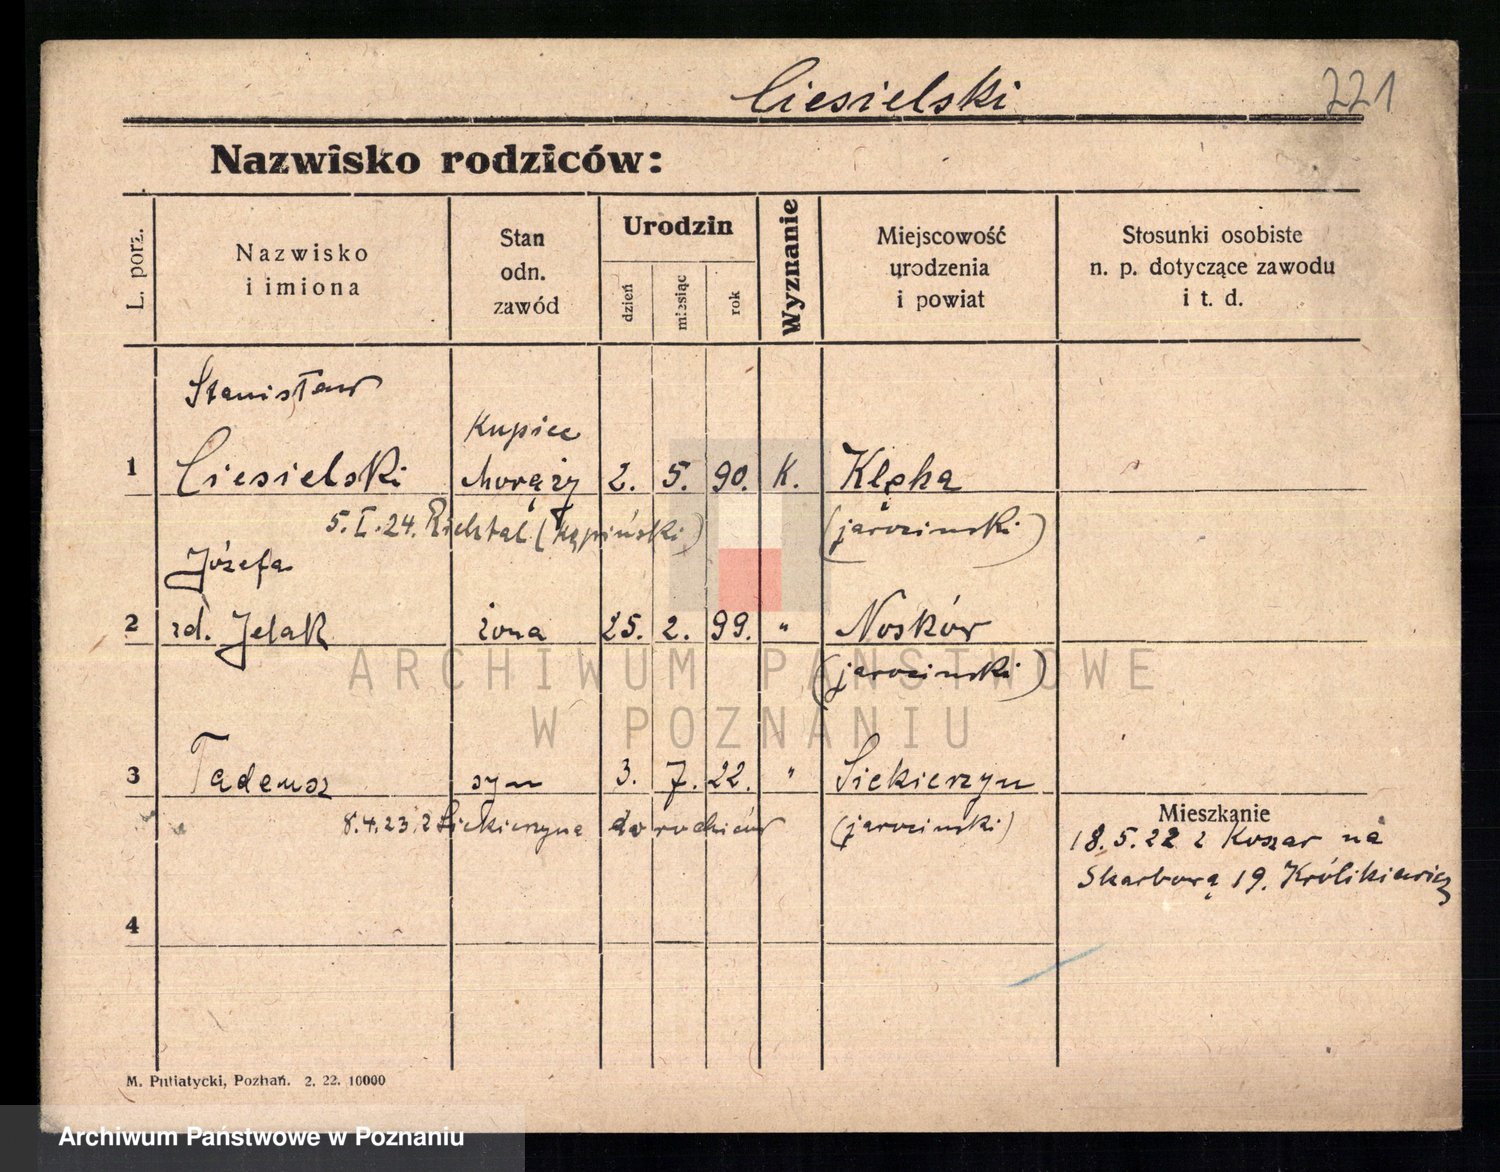 Ciesielski
221
Nazwisko rodziców:
L. porz.
Nazwisko
i imiona
Stan
odn.
zawód
Urodzin
dzień
miesiąc
rok
Wyznanie
Miejscowość
urodzenia
i powiat
Stosunki osobiste
n. p. dotyczące zawodu
i t. d.
Stanisław
Kupiec
1 Ciesielski 2. 5. 90. K. Klęka
5. I. 24. Richtal (kępiński) (jarocinski)
Józefa
2 zd. Jelak żona 25. 2. 99. " Nosków
(jarocinski)
3 Tadeusz syn 3. 7. 22. " Siekierzyn
8.4.23 z Siekierzyna do rodziców (jarocinski)
Mieszkanie
18.5.22 z Koszar na
Skarbową 19. Królikiewicz
4
M. Putiatycki, Poznań. 2. 22. 10000
ARCHIWUM PAŃSTWOWE
W POZNANIU
Archiwum Państwowe w Poznaniu